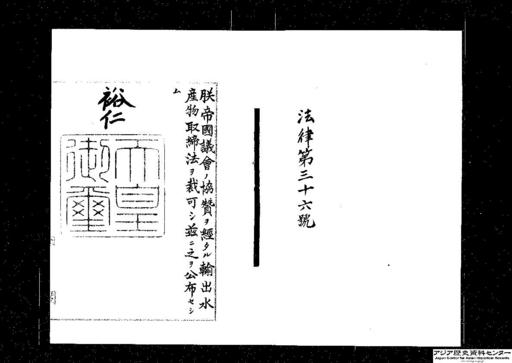 法律第三十六號
朕帝國議會ノ協贊ヲ經タル輸出水
産物取締法ヲ裁可シ茲ニ之ヲ公布セシ
ム
裕仁
天皇
御璽
アジア歴史資料センター
Japan Center for Asian Historical Records